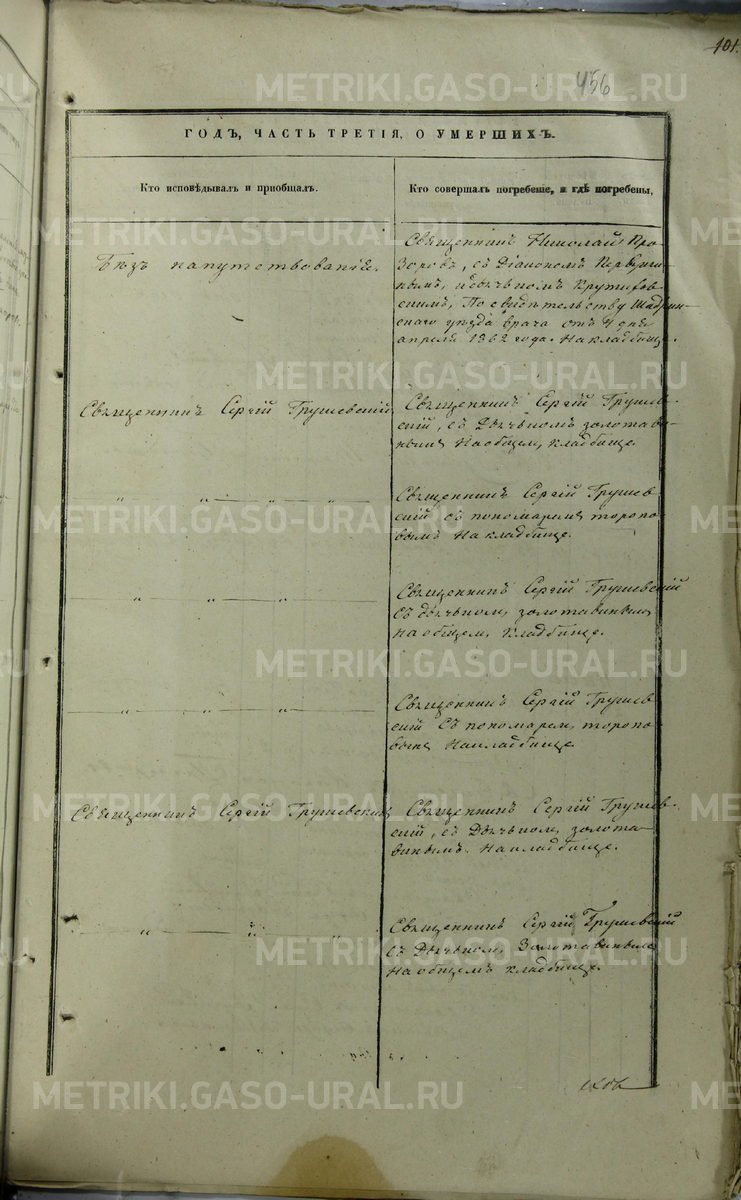 101.
456
ГОДЪ, ЧАСТЬ ТРЕТІЯ, О УМЕРШИХЪ.
Кто исповѣдывалъ и пріобщалъ.
Кто совершалъ погребеніе, и гдѣ погребены,
Безъ напутствованія.
Священникъ Николай Про-
зоровъ, съ Діакономъ Первуши-
нымъ, и дьячкомъ Крутиков-
скимъ, По свидѣтельству Шадрин-
скаго уѣзда врача отъ 4 дня
апреля 1862 года. На кладбище.
Священникъ Сергій Грушевскій
Священникъ Сергій Грушев-
скій, съ Дьячкомъ золотави-
нымъ На общемъ, кладбище.
" " " "
Священникъ Сергій Грушев-
скій съ пономаремъ торопо-
вымъ На кладбище.
" " "
Священникъ Сергій Грушевскій
Съ дьячком, золотавинымъ
на общем, кладбище.
" " "
Священникъ Сергій Грушев-
скій Съ пономарем, торопо-
вымъ На кладбище.
Священникъ Сергій Грушевский
Священникъ Сергій Грушев-
скій, съ Дьячком, золота-
винымъ. На кладбище.
" " "
Священникъ Сергій Грушевскій
Съ Дьячком, Золотавинымъ
На общемъ кладбище.
METRIKI.GASO-URAL.RU